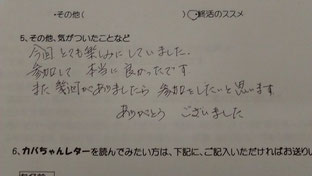 ・その他(　　　　　　)〇終活のススメ
5、その他、気がついたことなど
今回 とても楽しみにしていました。
参加して 本当に 良かったです
また 機会がありましたら 参加をしたいと思います
ありがとう ございました
6、カバちゃんレターを読んでみたい方は、下記に、ご記入いただければお送りい